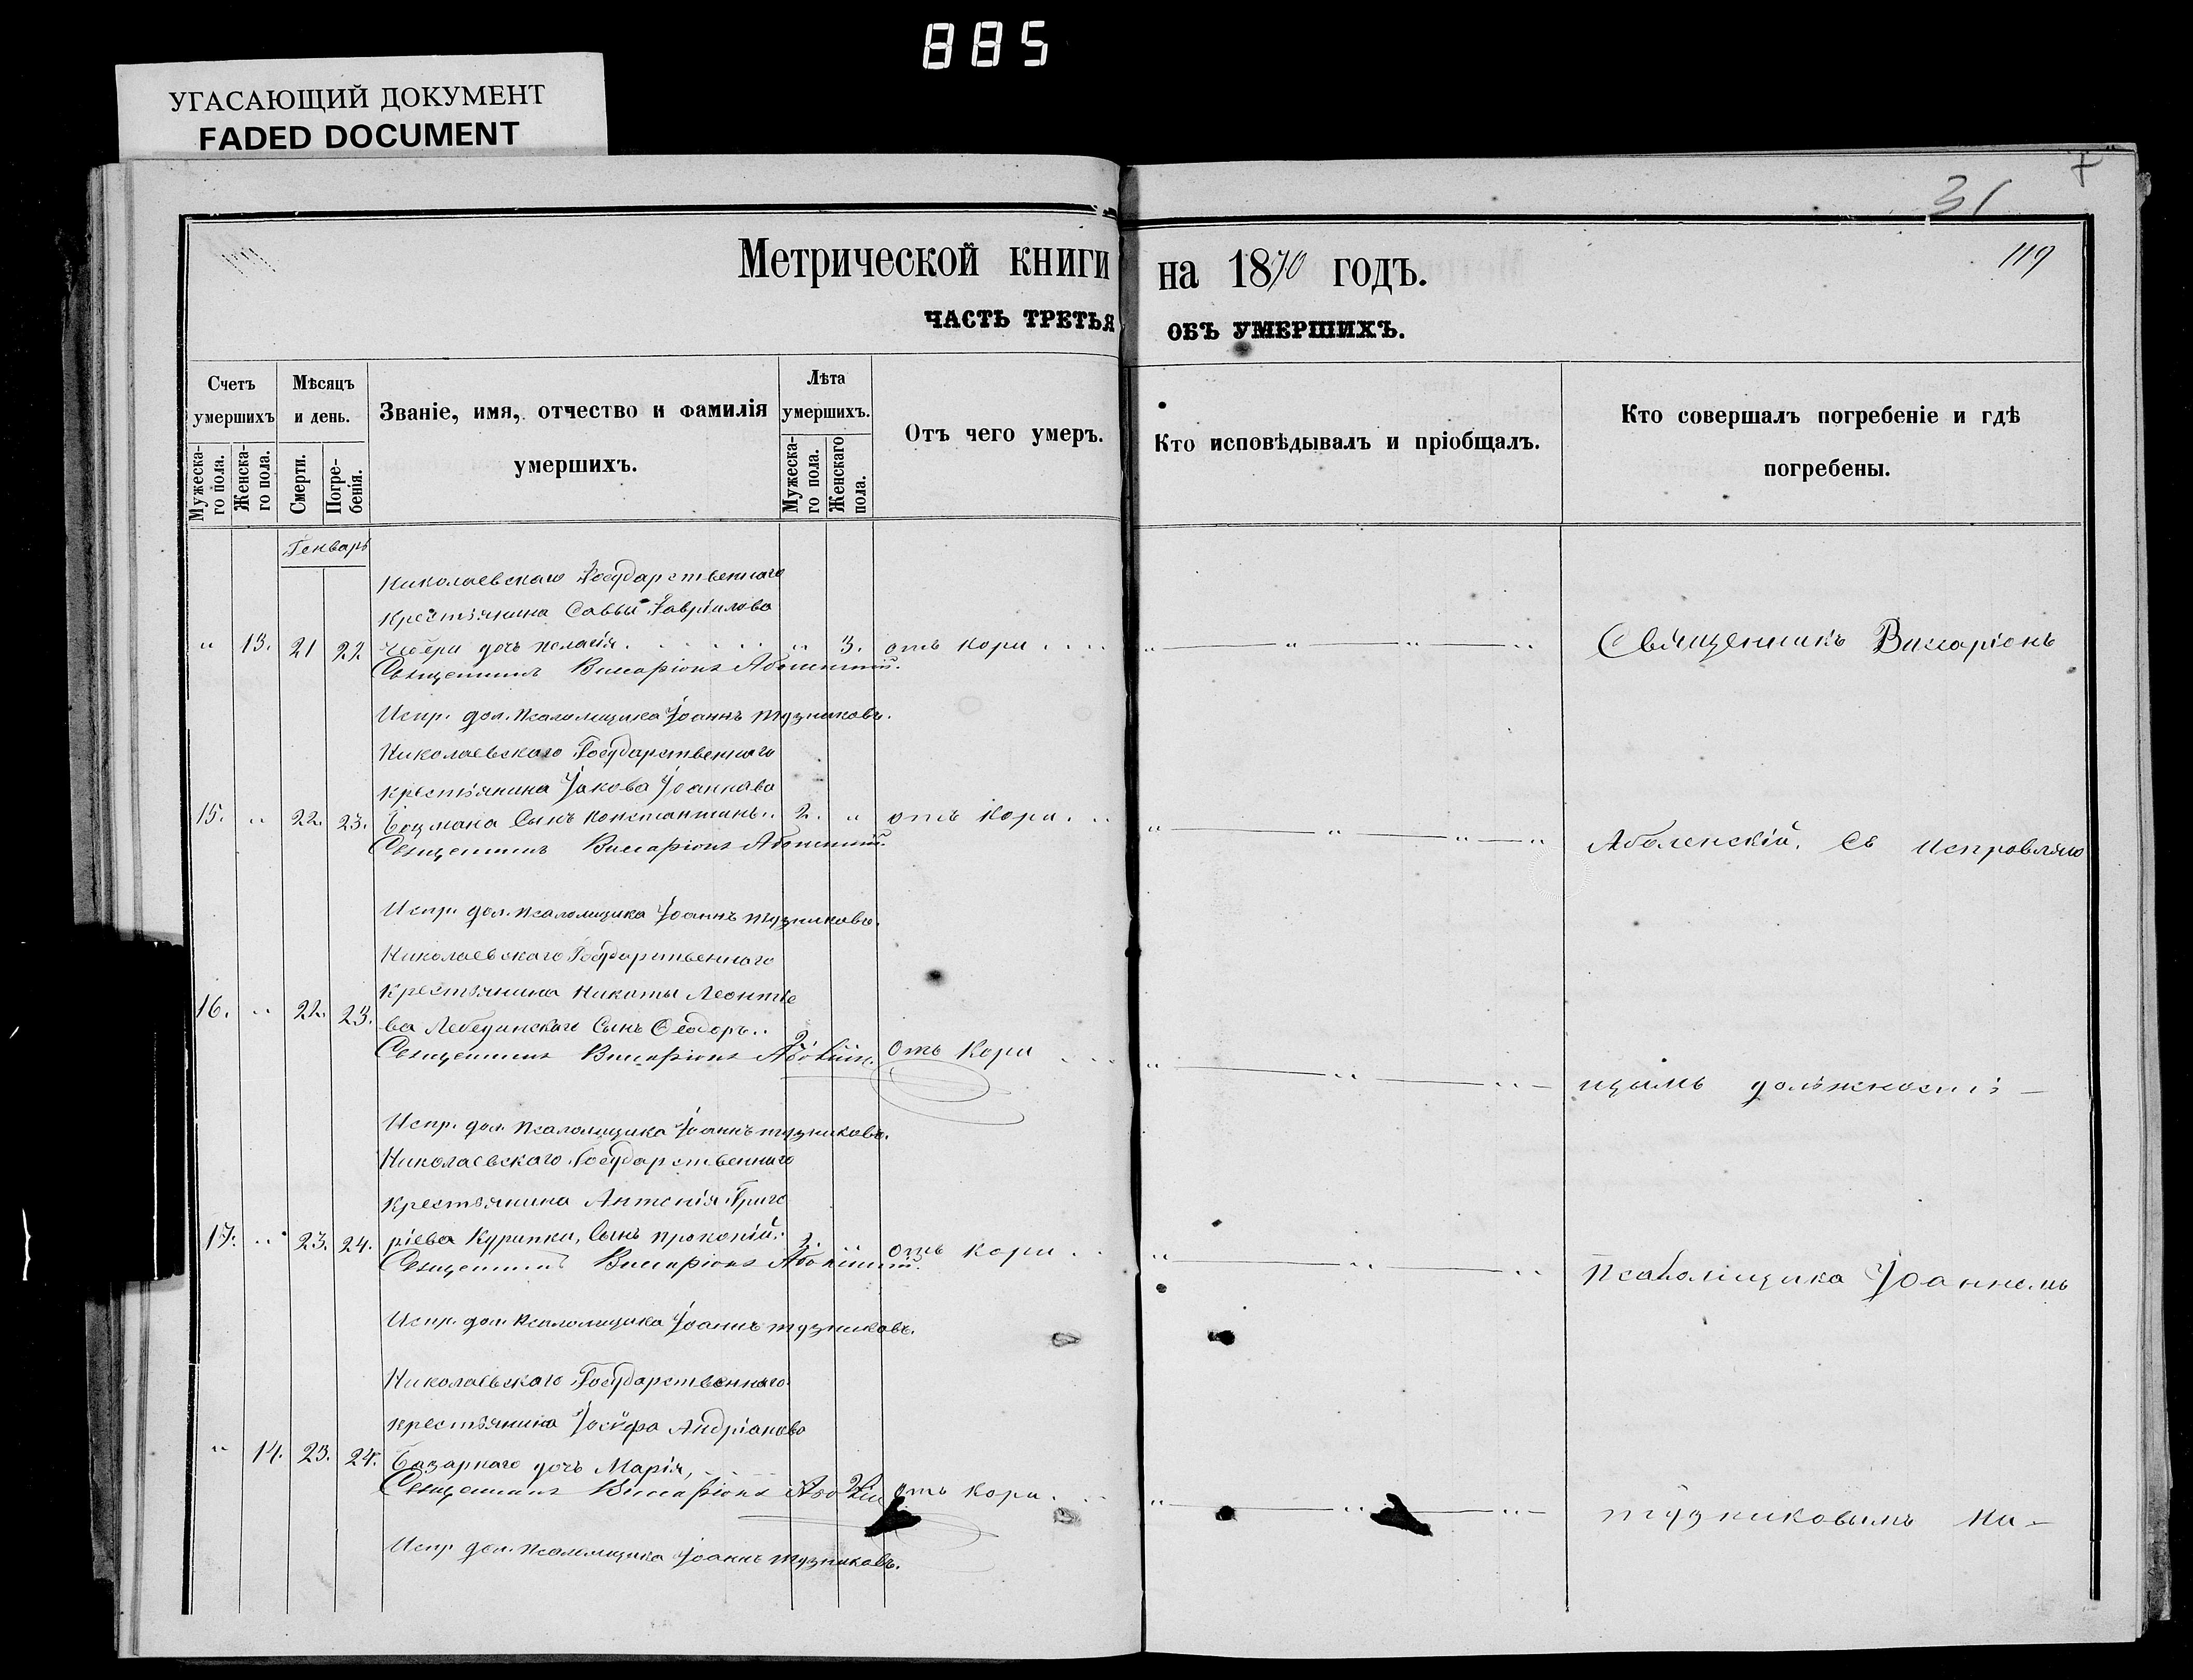 885
УГАСАЮЩИЙ ДОКУМЕНТ
FADED DOCUMENT
31
119
Метрической книги на 1870 годъ.
ЧАСТЬ ТРЕТЬЯ ОБЪ УМЕРШИХЪ.
Счетъ умершихъ
Мужеска-го пола.
Женска-го пола.
Мѣсяцъ и день.
Смерти.
Погре-бенія.
Званіе, имя, отчество и фамилія умершихъ.
Лѣта умершихъ.
Мужеска-го пола.
Женскаго пола.
Отъ чего умеръ.
Кто исповѣдывалъ и пріобщалъ.
Кто совершалъ погребеніе и гдѣ погребены.
Генварь
Николаевскаго Государственнаго
крестьянина Саввы Гаврилова
" 13. 21 22 дочь пелагія " 3. отъ кори
" " " Священникъ Виссаріонъ
Священникъ Виссаріонъ
Испр. дол. псаломщика Іоаннъ тузниковъ.
Николаевскаго Государственнаго
крестьянина Іакова Іоаннова
15. " 22. 23. Боцмана Сынъ константинъ 2. " отъ кори
" " " " Аболенскій, съ исправляю
Священникъ Виссаріонъ
Испр. дол. псаломщика Іоаннъ тузниковъ.
Николаевскаго Государственнаго
крестьянина Никиты Леонтіе
16. " 22. 23. ва Лебединскаго Сынъ Ѳеодоръ 2. отъ кори
" " " щимъ должность
Священникъ Виссаріонъ
Испр. дол. псаломщика Іоаннъ тузниковъ.
Николаевскаго Государственнаго
крестьянина Антонія Григо
17. " 23. 24. ріева Курипки, Сынъ прокопій 2. " отъ кори
" " " псаломщика Іоанномъ
Священникъ Виссаріонъ
Испр. дол. псаломщика Іоаннъ тузниковъ.
Николаевскаго Государственнаго
крестьянина Іосифа Андріанова
" 14. 23. 24. Базарнаго дочь Марія, 2. отъ кори
" " " тузниковымъ на-
Священникъ Виссаріонъ
Испр. дол. псаломщика Іоаннъ тузниковъ.